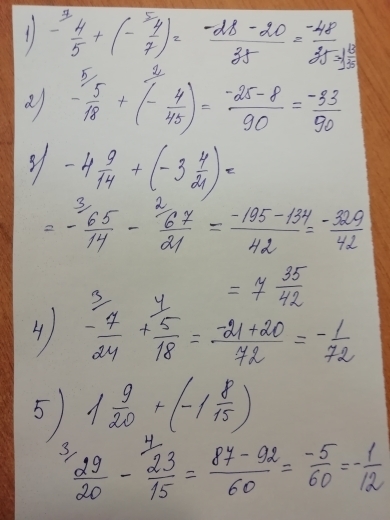 1) -4/5 (7/) + (-4/7 (5/)) = (-28 - 20)/35 = -48/35 = 1 13/35
2) -5/18 (5/) + (-4/45 (2/)) = (-25 - 8)/90 = -33/90
3) -4 9/14 + (-3 4/21) =
= -65/14 (3/) - 67/21 (2/) = (-195 - 134)/42 = -329/42
= 7 35/42
4) -7/24 (3/) + 5/18 (4/) = (-21 + 20)/72 = -1/72
5) 1 9/20 + (-1 8/15)
29/20 (3/) - 23/15 (4/) = (87 - 92)/60 = -5/60 = -1/12